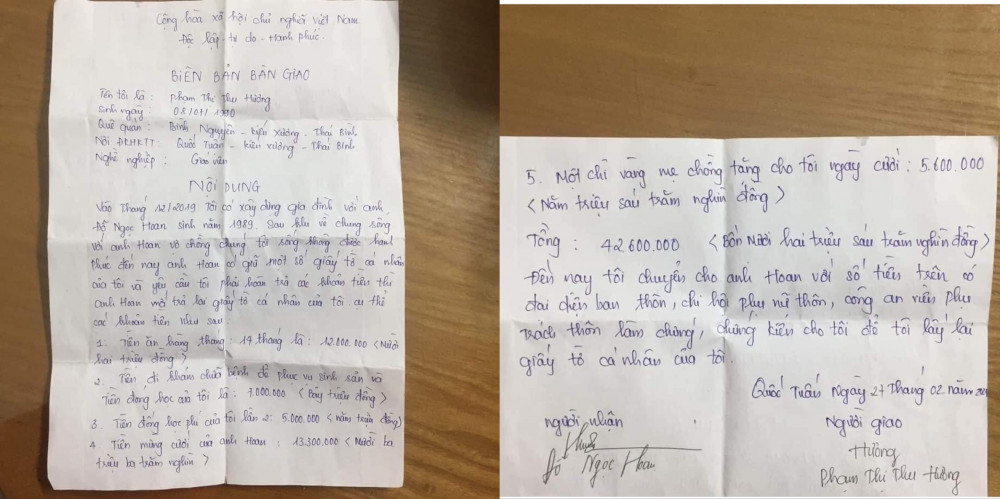 Cộng hòa xã hội chủ nghĩa Việt Nam
Độc lập - tự do - Hạnh phúc.
BIÊN BẢN BÀN GIAO
Tên tôi là : Phạm Thị Thu Hường
Sinh ngày : 08/07/1990
Quê quán : Bình Nguyên - Kiến Xương - Thái Bình
Nơi ĐKHKTT: Quốc Tuấn - Kiến Xương - Thái Bình
Nghề nghiệp : Giáo viên
NỘI DUNG
Vào Tháng 12/2019 Tôi có xây dựng gia đình với anh
Đỗ Ngọc Hoan sinh năm 1989. Sau khi về chung sống
với anh Hoan vợ chồng chúng tôi sống không được hạnh
phúc đến nay anh Hoan có giữ một số giấy tờ cá nhân
của tôi và yêu cầu tôi phải hoàn trả các khoản tiền thì
anh Hoan mới trả lại giấy tờ cá nhân của tôi cụ thể
các khoản tiền như sau
1: Tiền ăn hàng tháng : 14 tháng là : 12.000.000 < Mười
hai triệu đồng >
2. Tiền đi khám chữa bệnh để phục vụ sinh sản và
Tiền đóng học của tôi là : 7.000.000 < Bảy triệu đồng >
3. Tiền đóng học phí của tôi lần 2: 5.000.000 < năm triệu đồng >
4. Tiền mừng cưới của anh Hoan : 13.300.000 < Mười ba
triệu ba trăm nghìn >
5. Một chỉ vàng mẹ chồng tặng cho tôi ngày cưới : 5.600.000
< Năm triệu sáu trăm nghìn đồng >
Tổng : 42.600.000 < Bốn Mươi hai triệu sáu trăm nghìn đồng >
Đến nay tôi chuyển cho anh Hoan với số tiền trên có
đại diện ban thôn, chi hội phụ nữ thôn, công an viên phụ
trách thôn làm chứng, chứng kiến cho tôi để tôi lấy lại
giấy tờ cá nhân của tôi.
Quốc Tuấn Ngày 27 Tháng 02 năm
người nhận
Người giao
Hường
Đỗ Ngọc Hoan
Phạm Thị Thu Hường